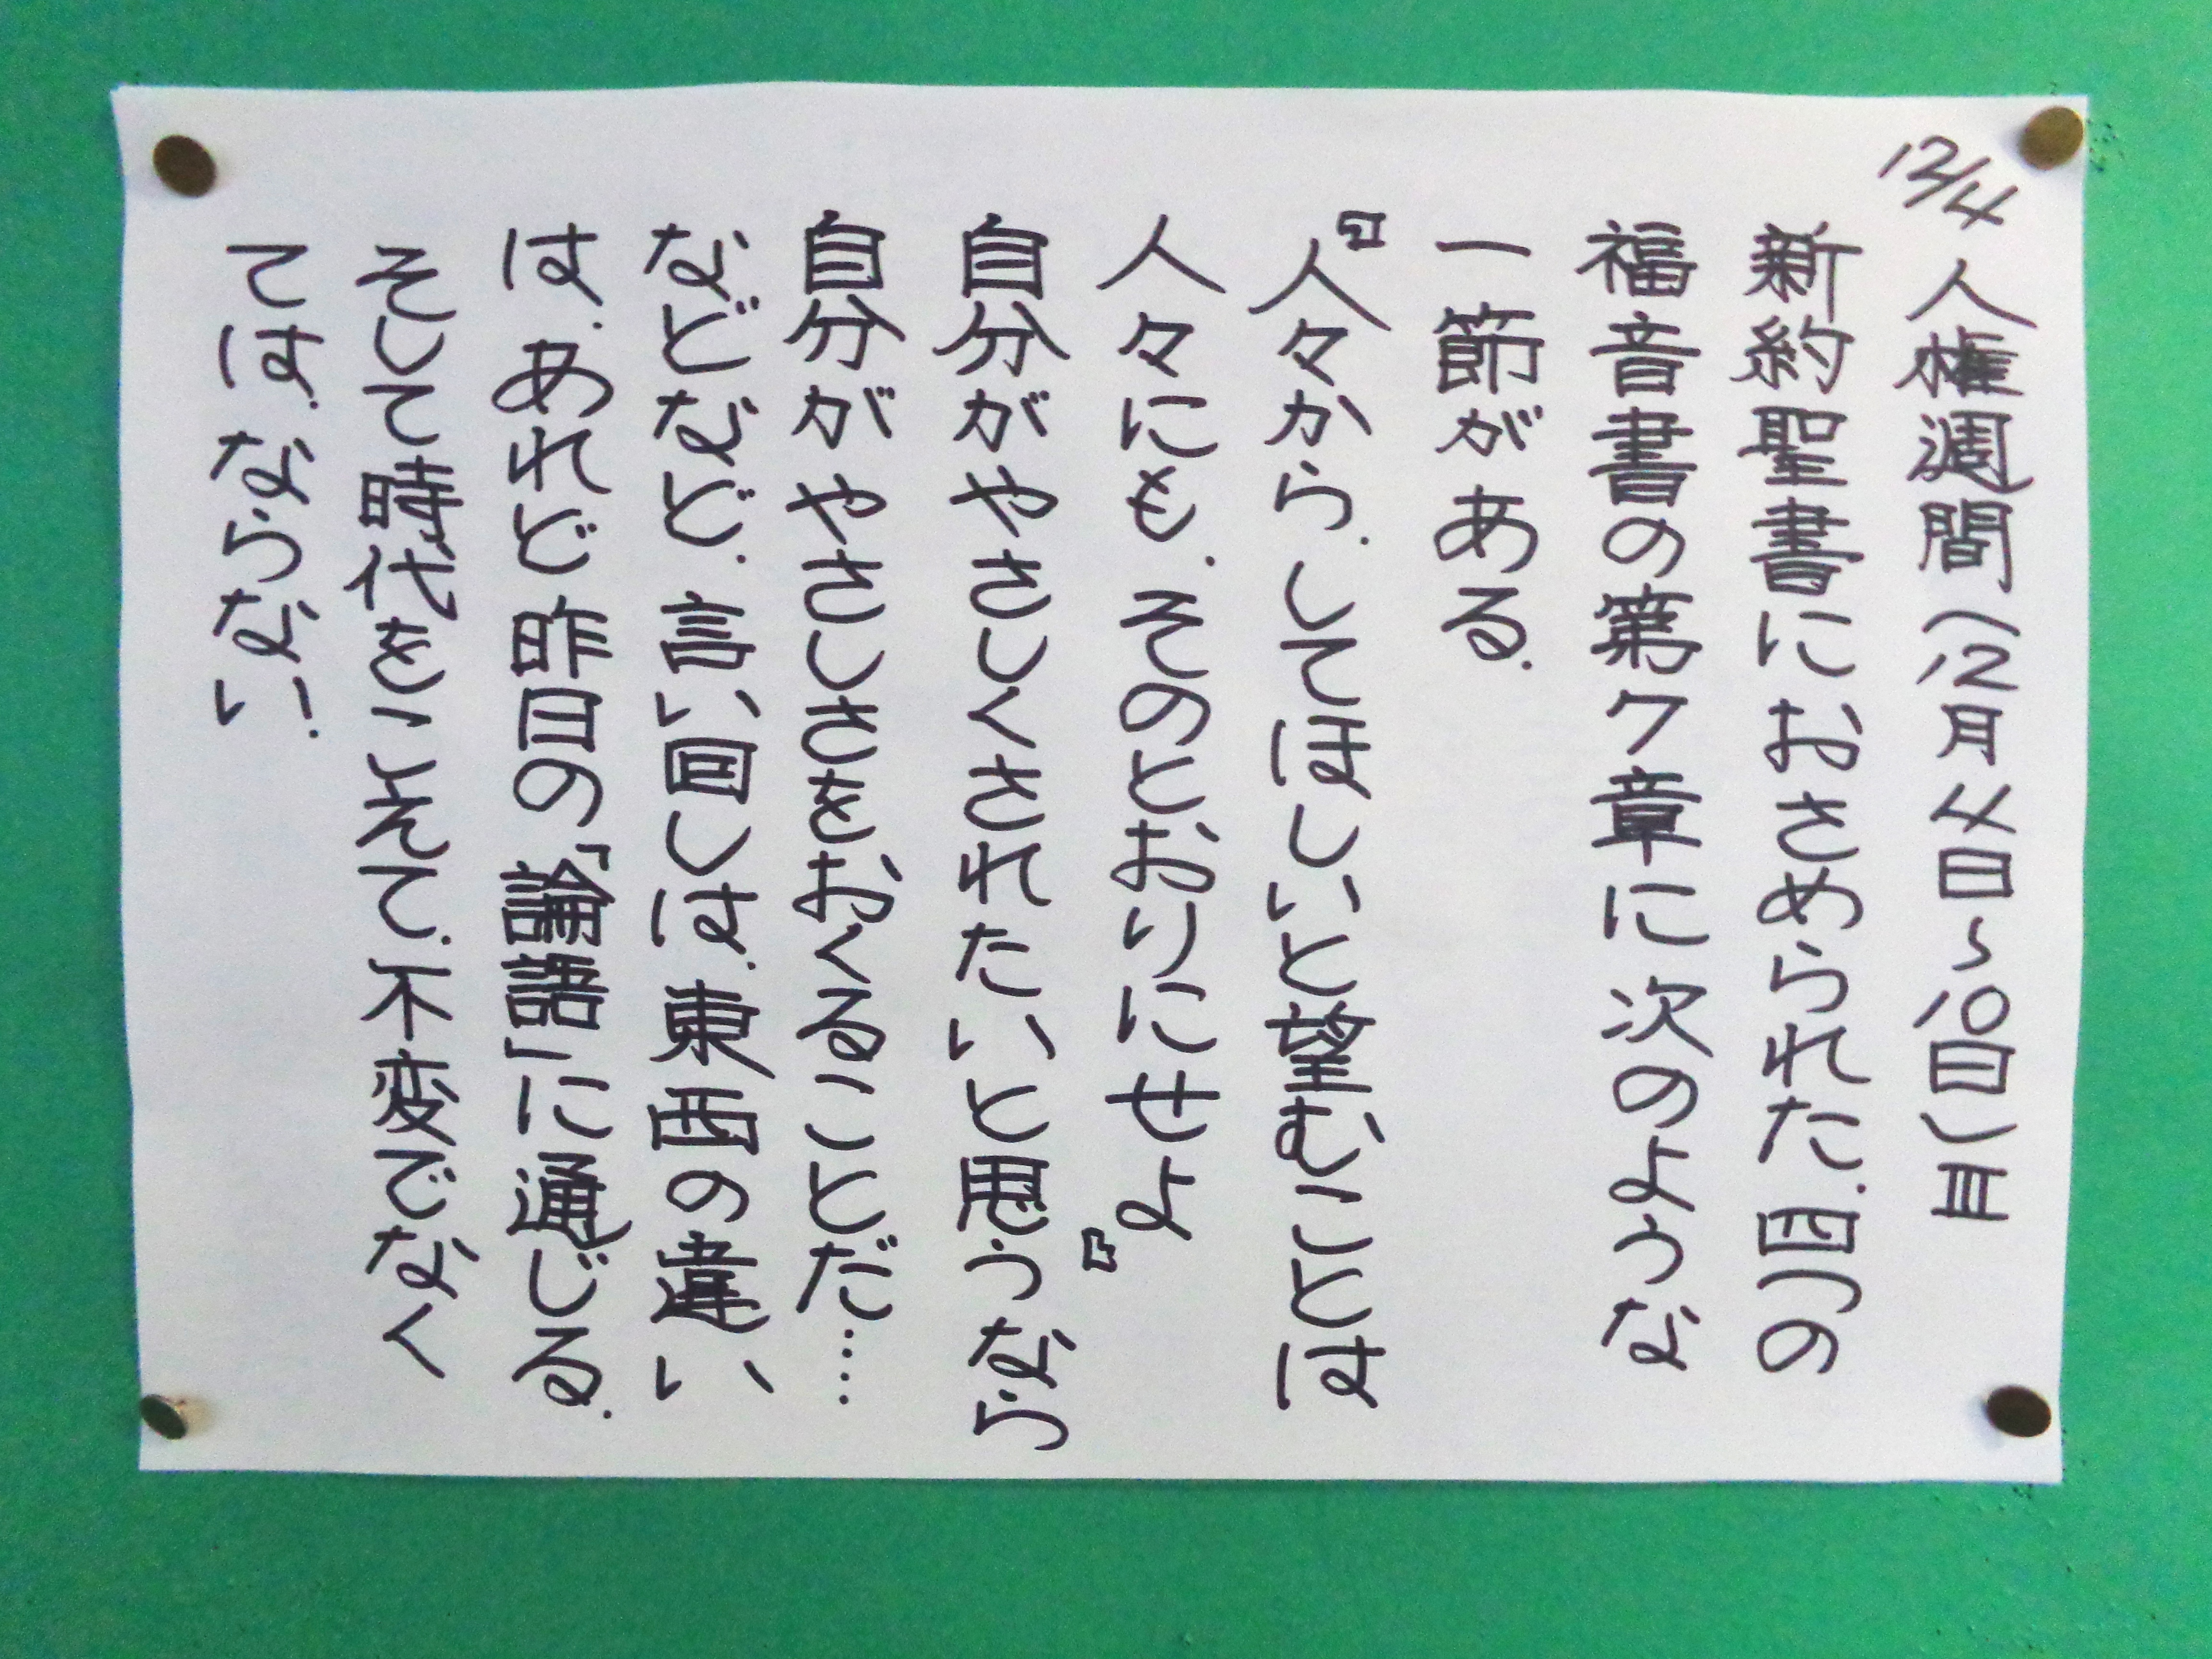 12/4
人権週間(12月4日~10日)Ⅲ
新約聖書におさめられた.四つの
福音書の第7章に次のような
一節がある.
『人々から.してほしいと望むことは
人々にも.そのとおりにせよ』
自分がやさしくされたいと思うなら
自分がやさしさをおくることだ…
などなど.言い回しは.東西の違い
は.あれど昨日の「論語」に通じる.
そして時代をこえて.不変でなく
ては.ならない.